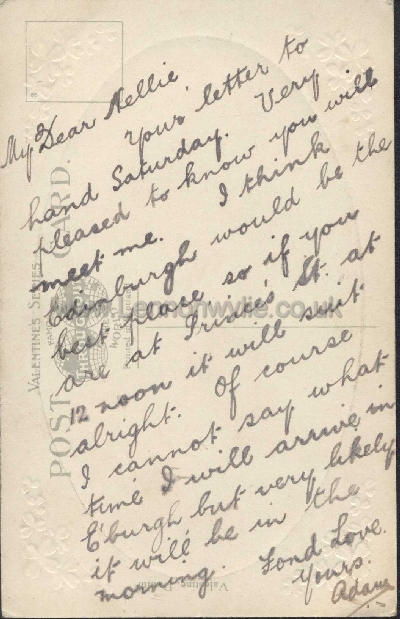 My Dear Nellie
Your letter to
hand Saturday. Very
pleased to know you will
meet me. I think
Edinburgh would be the
best place so if you
are at Prince's St. at
12 noon it will suit
alright. Of course
I cannot say what
time I will arrive in
E'burgh but very likely
it will be in the
morning. Fond Love.
Yours.
Adam
POST CARD.
VALENTINES SERIES
www.Lennonwylie.co.uk